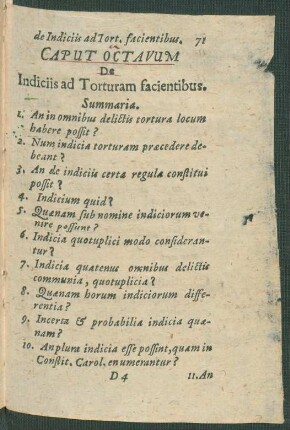 de Indiciis ad Tort. facientibus. 71
CAPUT OCTAVUM
De
Indiciis ad Torturam facientibus.
Summaria.
1. An in omnibus delictis tortura locum
habere possit?
2. Num indicia torturam præcedere de-
beant?
3. An de indiciis certa regula constitui
possit?
4. Indicium quid?
5. Quænam sub nomine indiciorum ve-
nire possunt?
6. Indicia quotuplici modo consideran-
tur?
7. Indicia quatenus omnibus delictis
communia, quotuplicia?
8. Quænam horum indiciorum diffe-
rentia?
9. Incerta & probabilia indicia quæ-
nam?
10. An plura indicia esse possint, quam in
Constit. Carol. enumerantur?
D 4 11. An